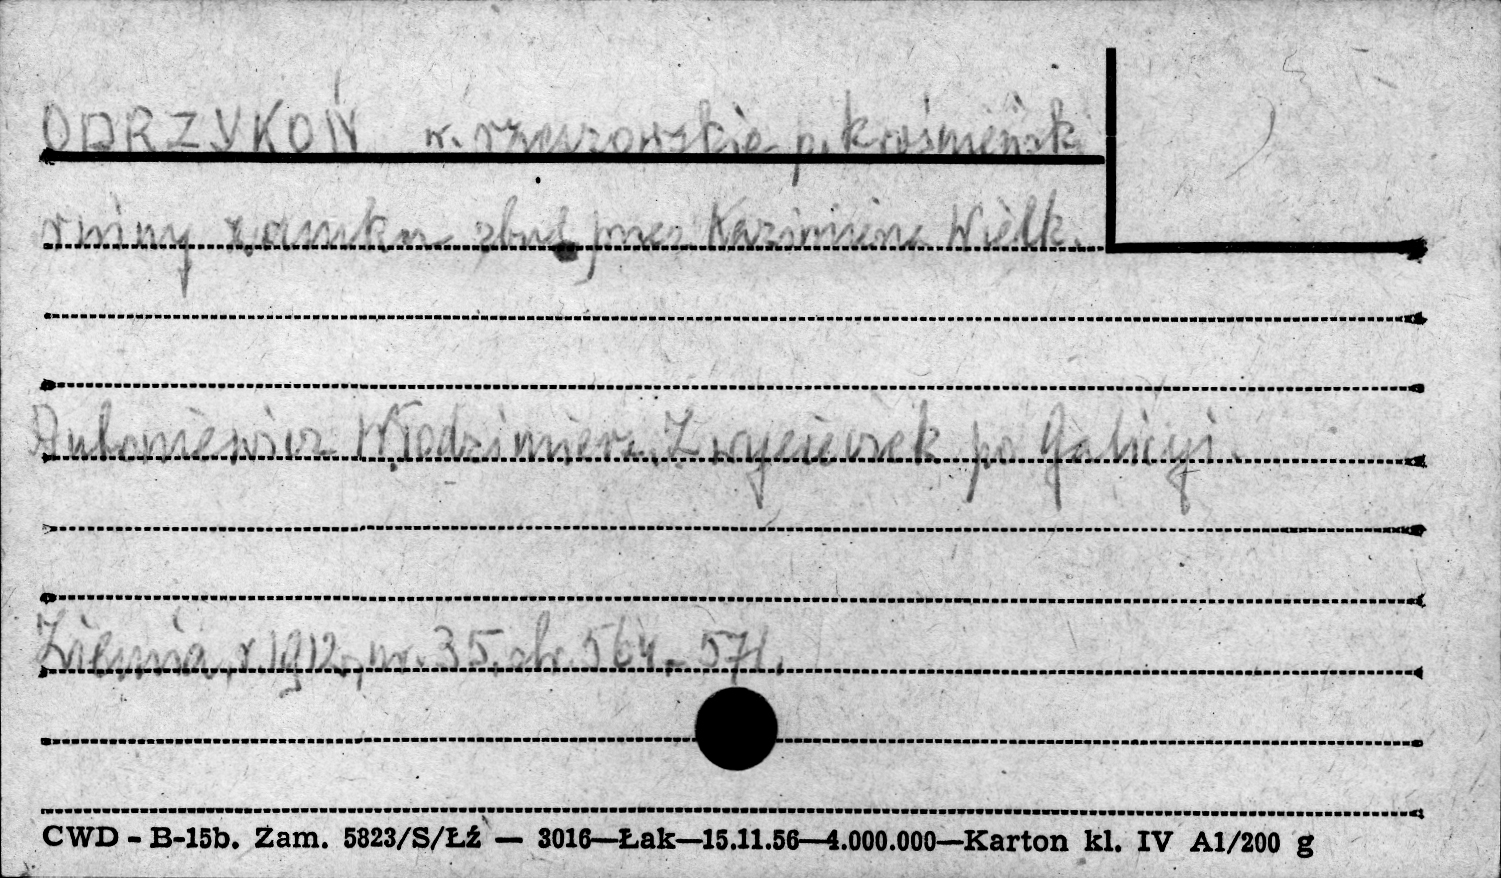 ODRZYKOŃ w. rzeszowskie p. krośnieńsk.
ruiny zamku zbud. przez Kazimierza Wielk.
Antoniewicz Włodzimierz. Z wycieczek po Galicyi.
Ziemia, r. 1912, nr. 35, str. 564-571.
CWD - B-15b. Zam. 5823/S/Łź — 3016—Łak—15.11.56—4.000.000—Karton kl. IV A1/200 g